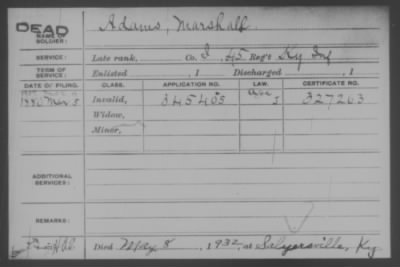 DEAD
NAME OF SOLDIER: Adams, Marshall
SERVICE: Late rank, Co. I, 45 Reg't Ky Inf
TERM OF SERVICE: Enlisted , 1 Discharged , 1
DATE OF FILING. CLASS. APPLICATION NO. LAW. CERTIFICATE NO.
1880 Mar 5 Invalid, 345405 327263
Widow,
Minor,
ADDITIONAL SERVICES:
REMARKS:
Died 8, 1932, at Salyersville, Ky